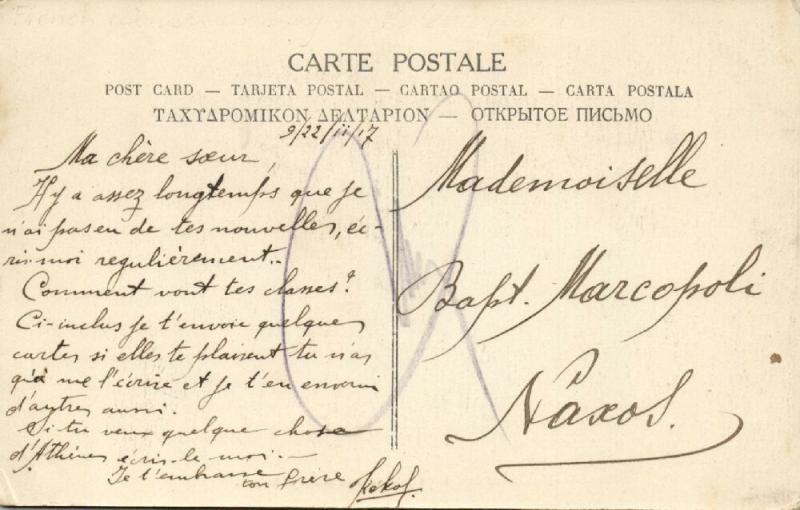 CARTE POSTALE
POST CARD — TARJETA POSTAL — CARTAO POSTAL — CARTA POSTALA
ΤΑΧΥΔΡΟΜΙΚΟΝ ΔΕΛΤΑΡΙΟΝ — ОТКРЫТОЕ ПИСЬМО
9/22/ii/17
Ma chère sœur,
Il y a assez longtemps que je
n'ai pas eu de tes nouvelles, éc-
ris-moi regulièrement.-
Comment vont tes classes?
Ci-inclus je t'envoie quelques
cartes si elles te plaisent tu n'as
qu'à me l'écrire et je t'en enverrai
d'autres aussi.
Si tu veux quelque chose
d'Athènes écris-le moi.-
Je t'embrasse
ton frère
Mademoiselle
Bapt. Marcopoli
Naxos.